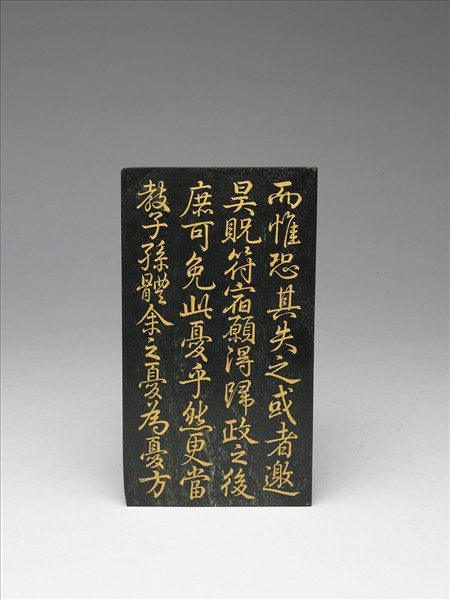 而惟恐其失之或者邀
昊貺符宿願得歸政之後
庶可免此憂乎然更當
教子孫體余之憂為憂方